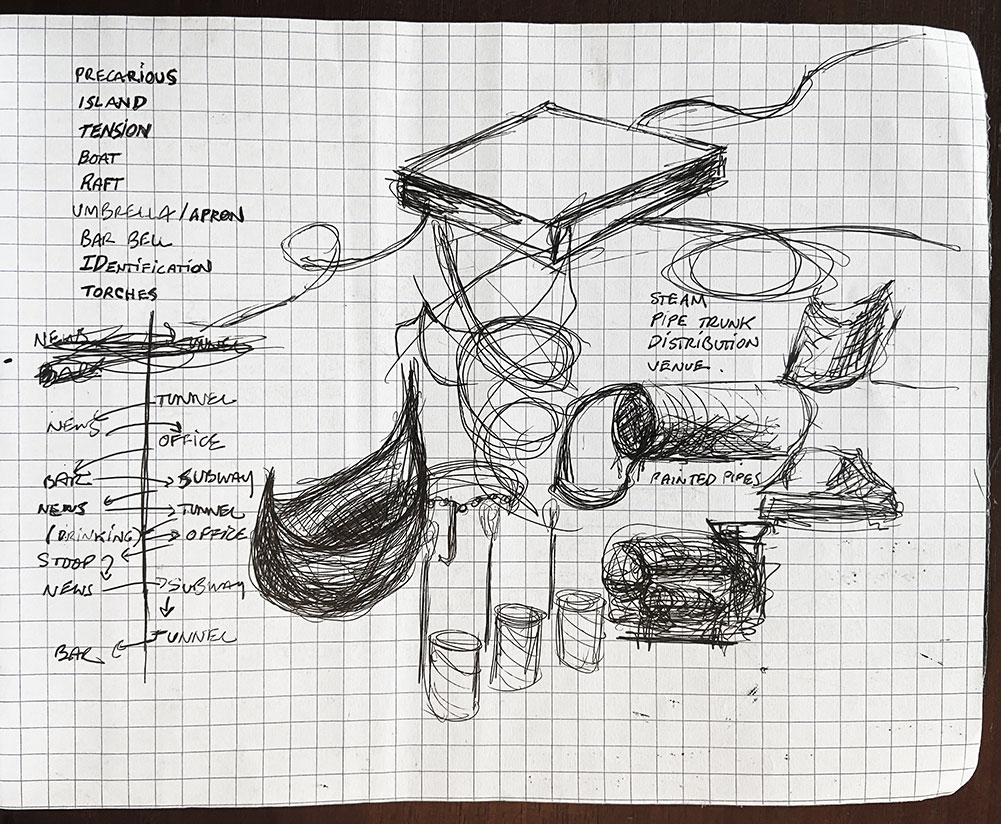 PRECARIOUS
ISLAND
TENSION
BOAT
RAFT
UMBRELLA/APRON
BAR BELL
IDENTIFICATION
TORCHES
NEWS TUNNEL
BAR
TUNNEL
NEWS
OFFICE
BAR SUBWAY
NEWS TUNNEL
(DRINKING) OFFICE
STOOP?
NEWS SUBWAY
TUNNEL
BAR
STEAM
PIPE TRUNK
DISTRIBUTION
VENUE.
PAINTED PIPES